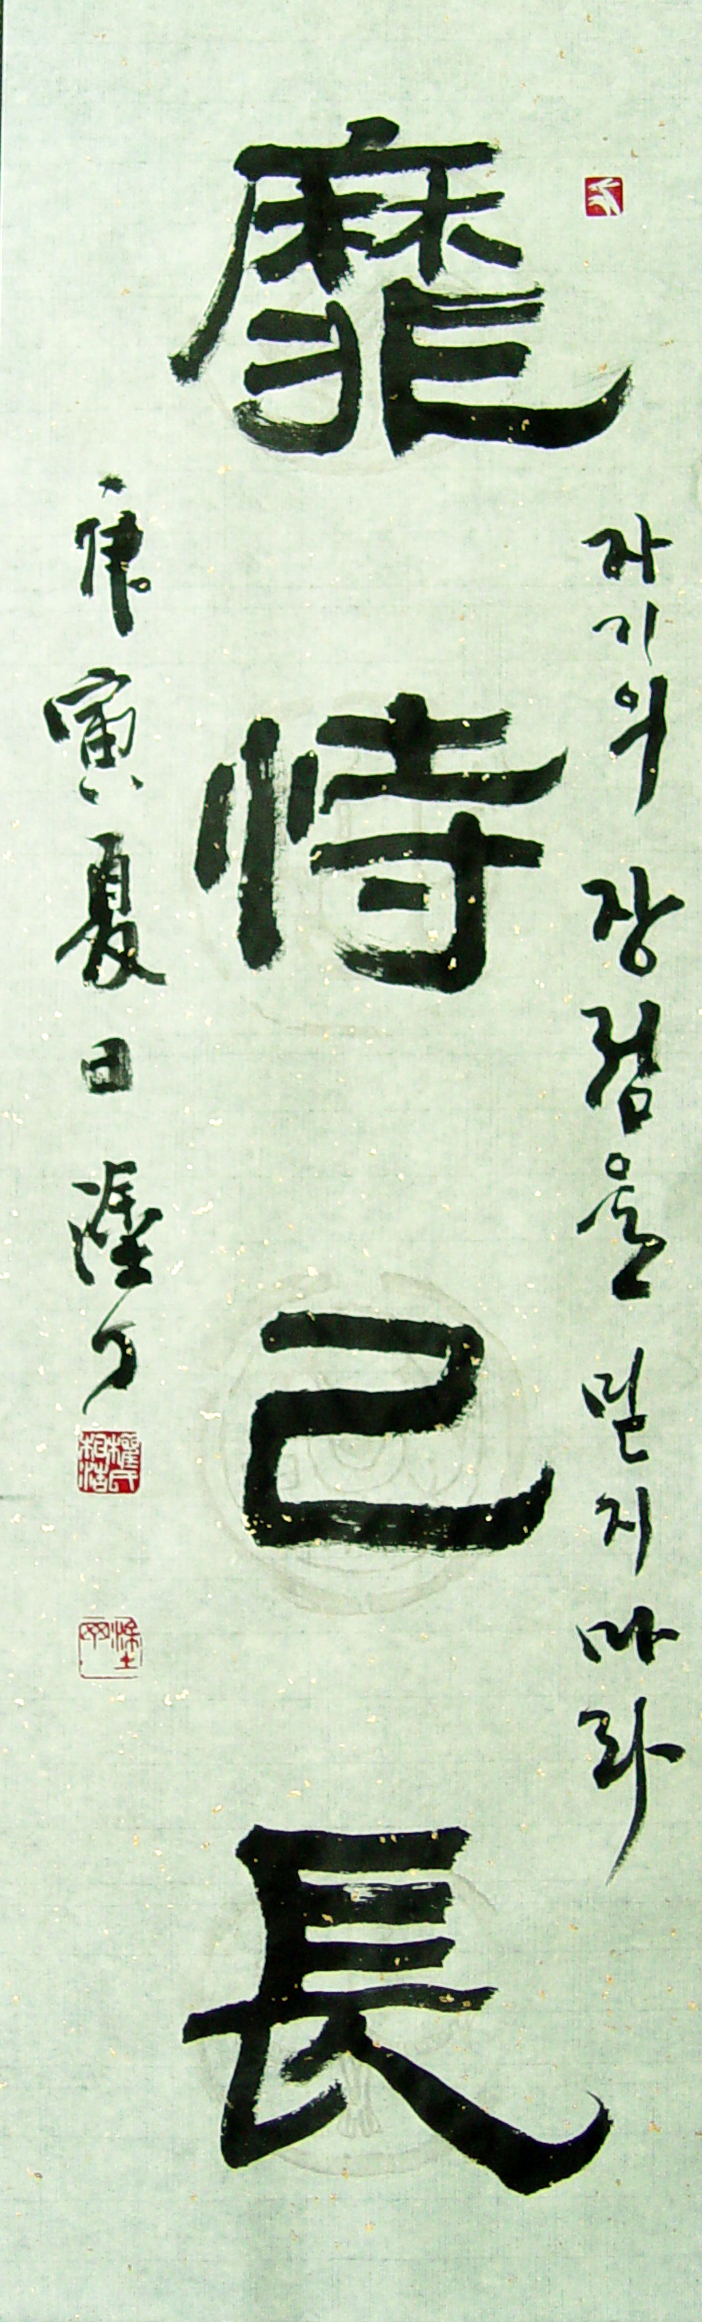 자기의 장점을 믿지 마라
靡恃己長
庚寅夏日